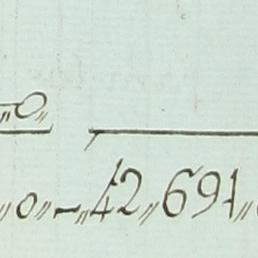 „0„
„0„–„42„691„